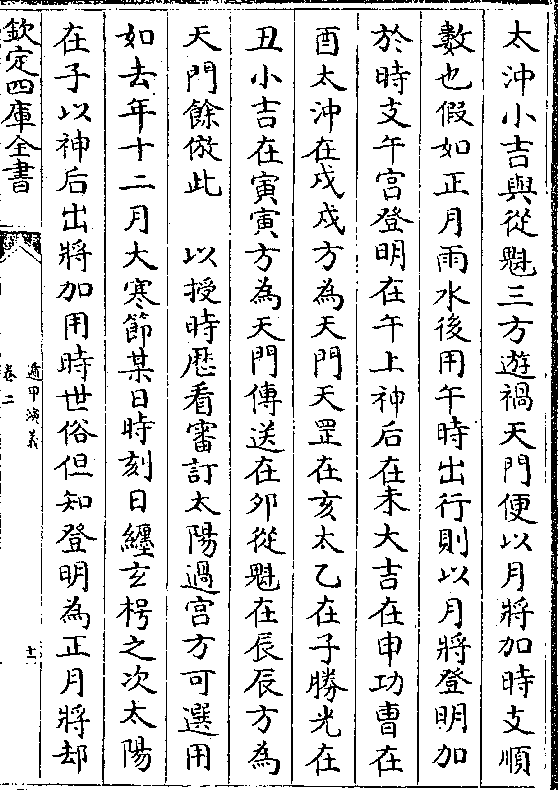 太沖小吉與從魁三方遊禍天門便以月將加時支順
數也假如正月雨水後用午時出行則以月將登明加
於時支午宮登明在午上神后在未大吉在申功曹在
酉太沖在戍戍方為天門天罡在亥太乙在子勝光在
丑小吉在寅寅方為天門傳送在夘從魁在辰辰方為
天門餘倣此　以授時厯看審訂太陽過宮方可選用
如去年十二月大寒節某日時刻日纏玄枵之次太陽
在子以神后出將加用時世俗但知登明為正月將却
欽定四庫全書
遁甲演義
卷二
十一